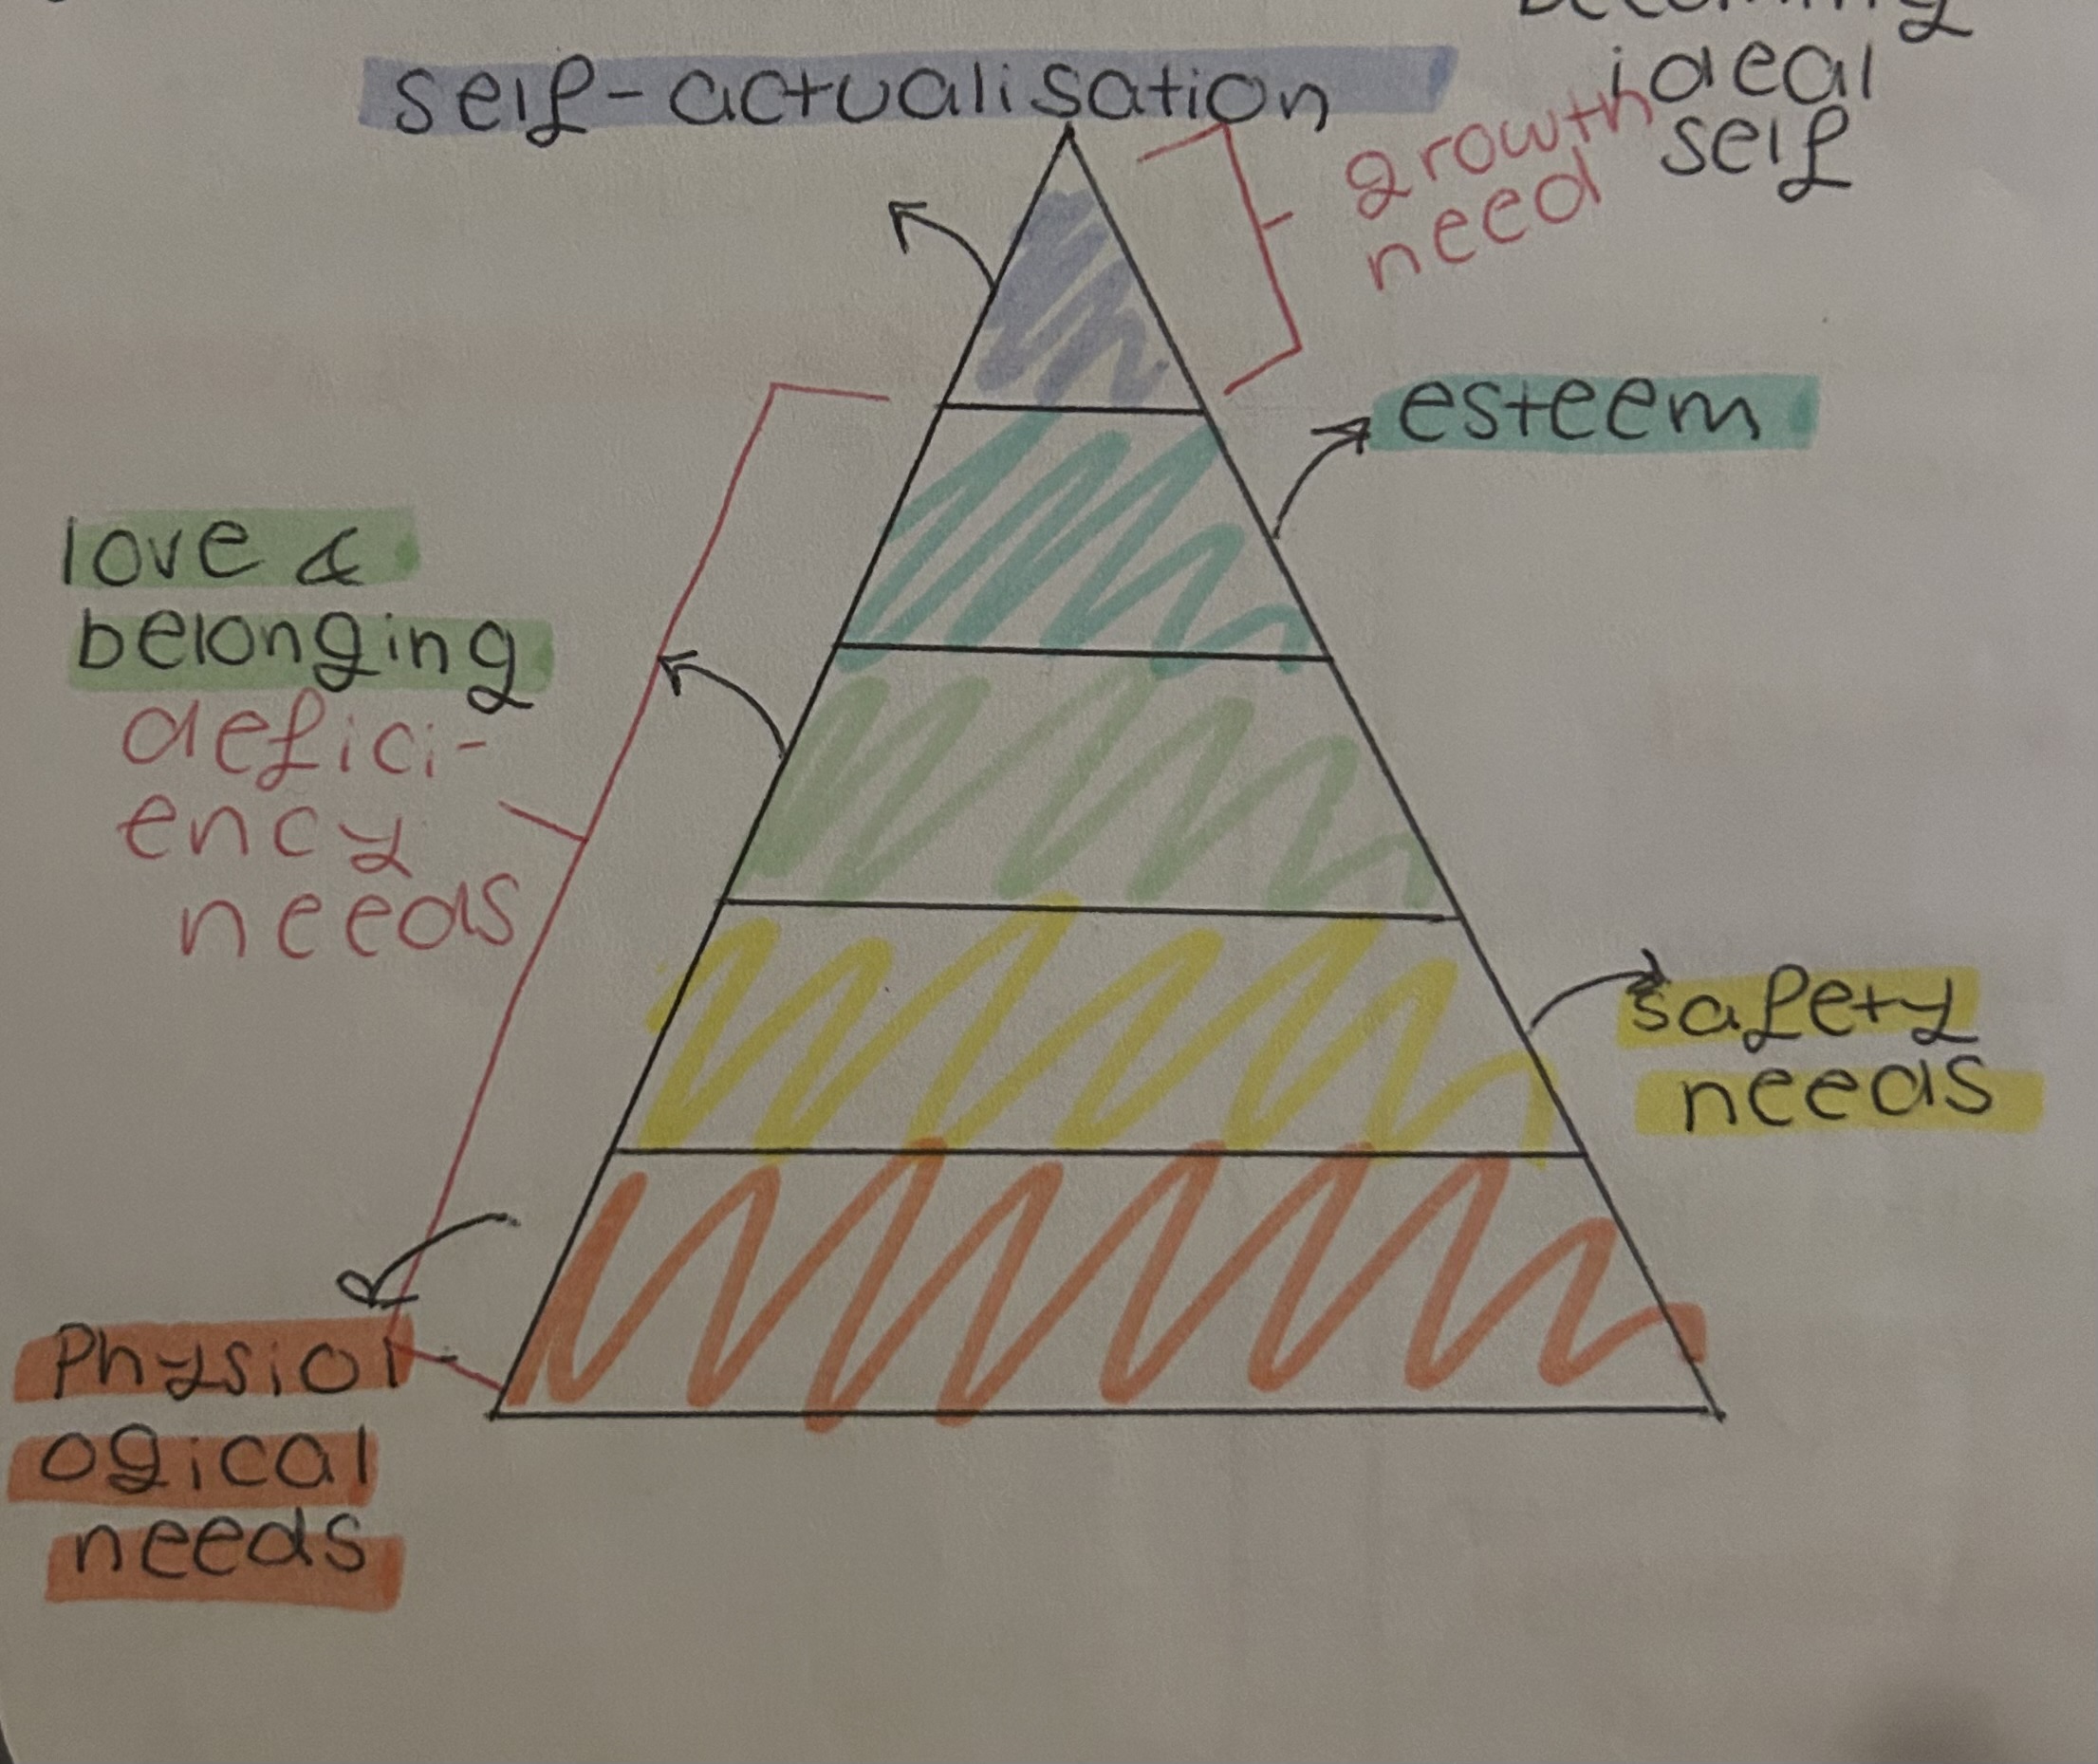 self-actualisation
ideal
self
growth
need
esteem
love &
belonging
defici-
ency
needs
safety
needs
Physiol-
ogical
needs